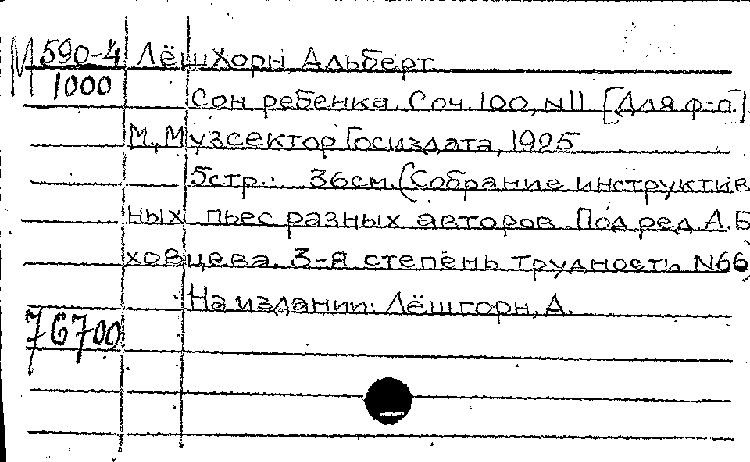 М 590-4 Лёшхорн Альберт
1000
Сон ребенка. Соч. 100, N11 [Для ф-п.]
М., Музсектор Госиздата, 1925
5стр. 36см. (Собрание инструктив
ных пьес разных авторов. Под ред. А. Б
ховцева. 3-я степень трудности. N66)
На издании: Лёшгорн, А.
76700